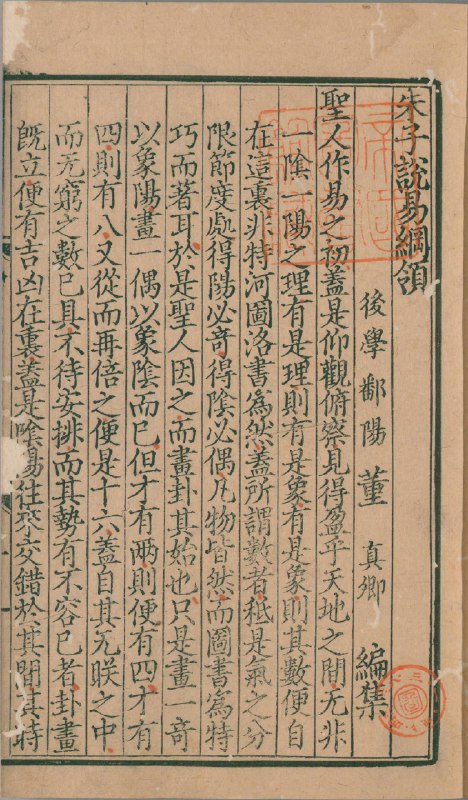 朱子說易綱領
後學鄱陽董真卿編集
聖人作易之初蓋是仰觀俯察見得盈乎天地之間无非
一陰一陽之理有是理則有是象有是象則其數便自
在這裏非特河圖洛書爲然蓋所謂數者秪是氣之分
限節度處得陽必竒得陰必偶凡物皆然而圖書爲特
巧而著耳於是聖人因之而畫卦其始也只是畫一竒
以象陽畫一偶以象陰而已但才有兩則便有四才有
四則有八又從而再倍之便是十六蓋自其无眹之中
而无窮之數已具不待安排而其勢有不容已者卦畫
旣立便有吉凶在裏蓋是陰陽徃來交錯於其間其時